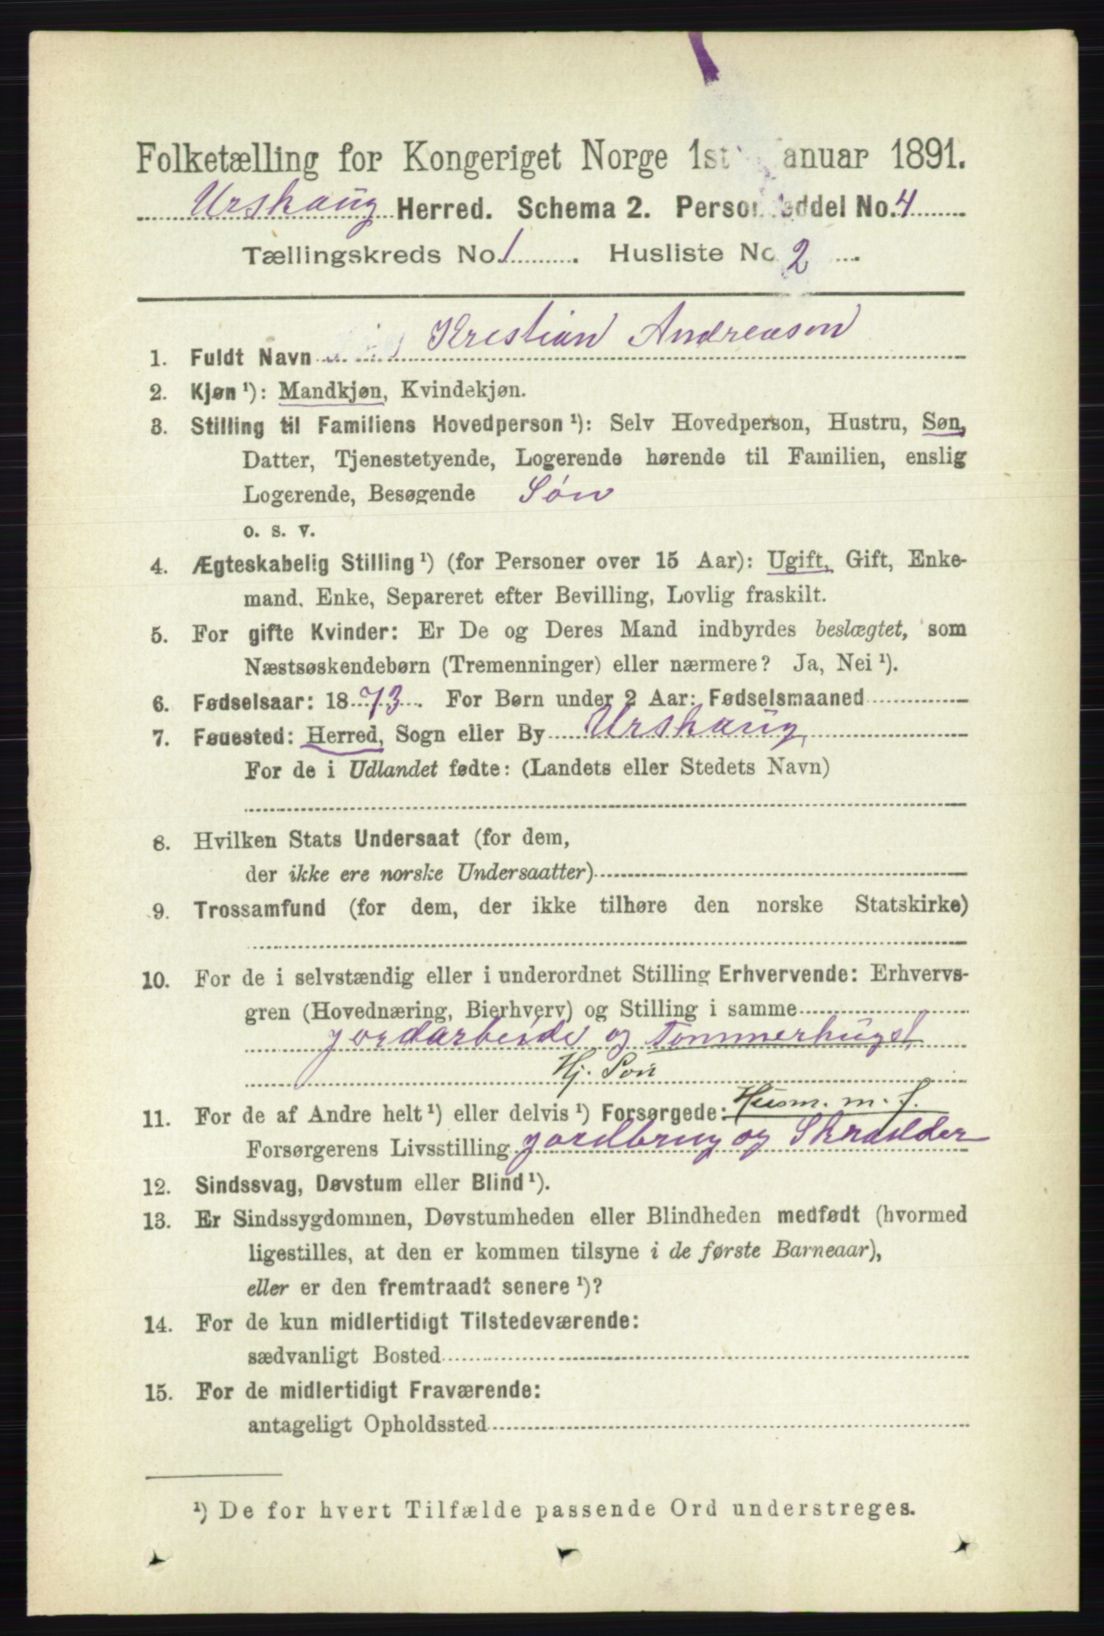 Folketælling for Kongeriget Norge 1st anuar 1891.
Urskaug Herred. Schema 2. Perso eddel No. 4
Tællingskreds No. 1. Husliste No 2.
1. Fuldt Navn Kristian Andreasen
2. Kjøn ¹): Mandkjøn, Kvindekjøn.
3. Stilling til Familiens Hovedperson ¹): Selv Hovedperson, Hustru, Søn,
Datter, Tjenestetyende, Logerende hørende til Familien, enslig
Logerende, Besøgende Søn
o. s. v.
4. Ægteskabelig Stilling ¹) (for Personer over 15 Aar): Ugift, Gift, Enke-
mand, Enke, Separeret efter Bevilling, Lovlig fraskilt.
5. For gifte Kvinder: Er De og Deres Mand indbyrdes beslægtet, som
Næstsøskendebørn (Tremenninger) eller nærmere? Ja, Nei ¹).
6. Fødselsaar: 1873. For Børn under 2 Aar: Fødselsmaaned
7. Føuested: Herred, Sogn eller By Urskaug
For de i Udlandet fødte: (Landets eller Stedets Navn)
8. Hvilken Stats Undersaat (for dem,
der ikke ere norske Undersaatter)
9. Trossamfund (for dem, der ikke tilhøre den norske Statskirke)
10. For de i selvstændig eller i underordnet Stilling Erhvervende: Erhvervs-
gren (Hovednæring, Bierhverv) og Stilling i samme
jordarbeide og Tømmerhugst
Hj. Søn
11. For de af Andre helt ¹) eller delvis ¹) Forsørgede: Husm. m. J.
Forsørgerens Livsstilling jordbrug og Skrædder
12. Sindssvag, Døvstum eller Blind ¹).
13. Er Sindssygdommen, Døvstumheden eller Blindheden medfødt (hvormed
ligestilles, at den er kommen tilsyne i de første Barneaar),
eller er den fremtraadt senere ¹)?
14. For de kun midlertidigt Tilstedeværende:
sædvanligt Bosted
15. For de midlertidigt Fraværende:
antageligt Opholdssted
¹) De for hvert Tilfælde passende Ord understreges.